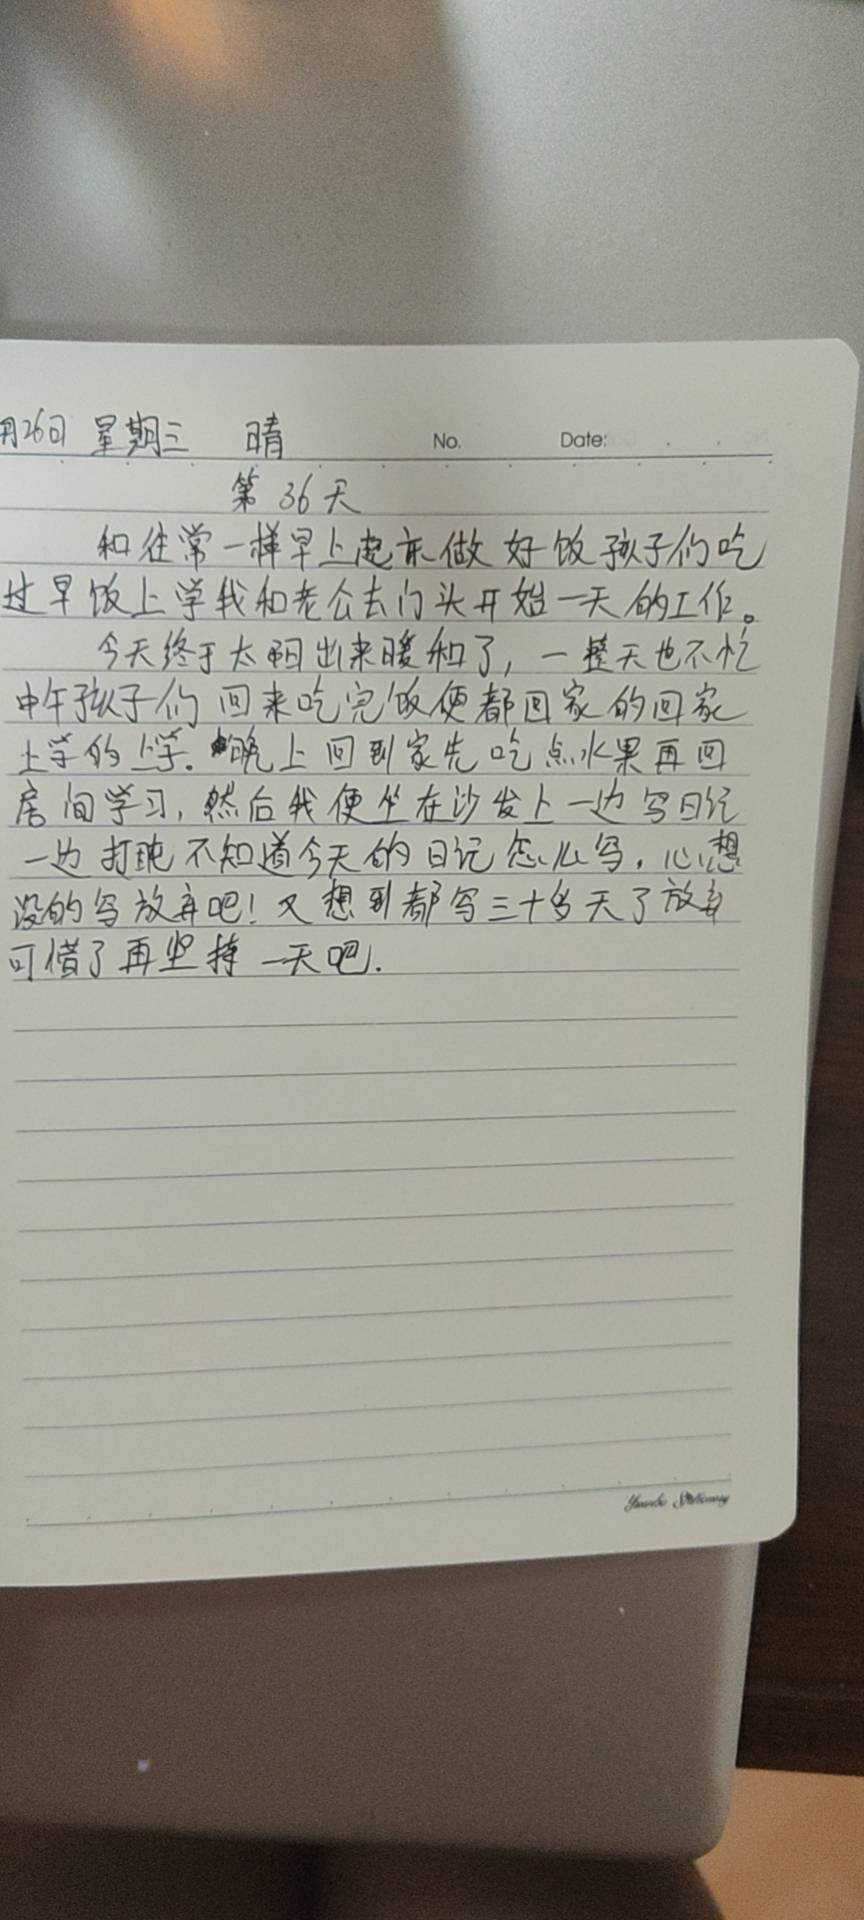 月26日 星期三 晴 No. Date:
第 36 天
和往常一样早上起来做好饭孩子们吃
过早饭上学我和老公去门头开始一天的工作。
今天终于太阳出来暖和了，一整天也不忙
中午孩子们回来吃完饭便都回家的回家
上学的上学.晚上回到家先吃点水果再回
房间学习,然后我便坐在沙发上一边写日记
一边打盹不知道今天的日记怎么写,心想
没的写放弃吧!又想到都写三十多天了放弃
可惜了再坚持一天吧.
Yuanbo Stationery